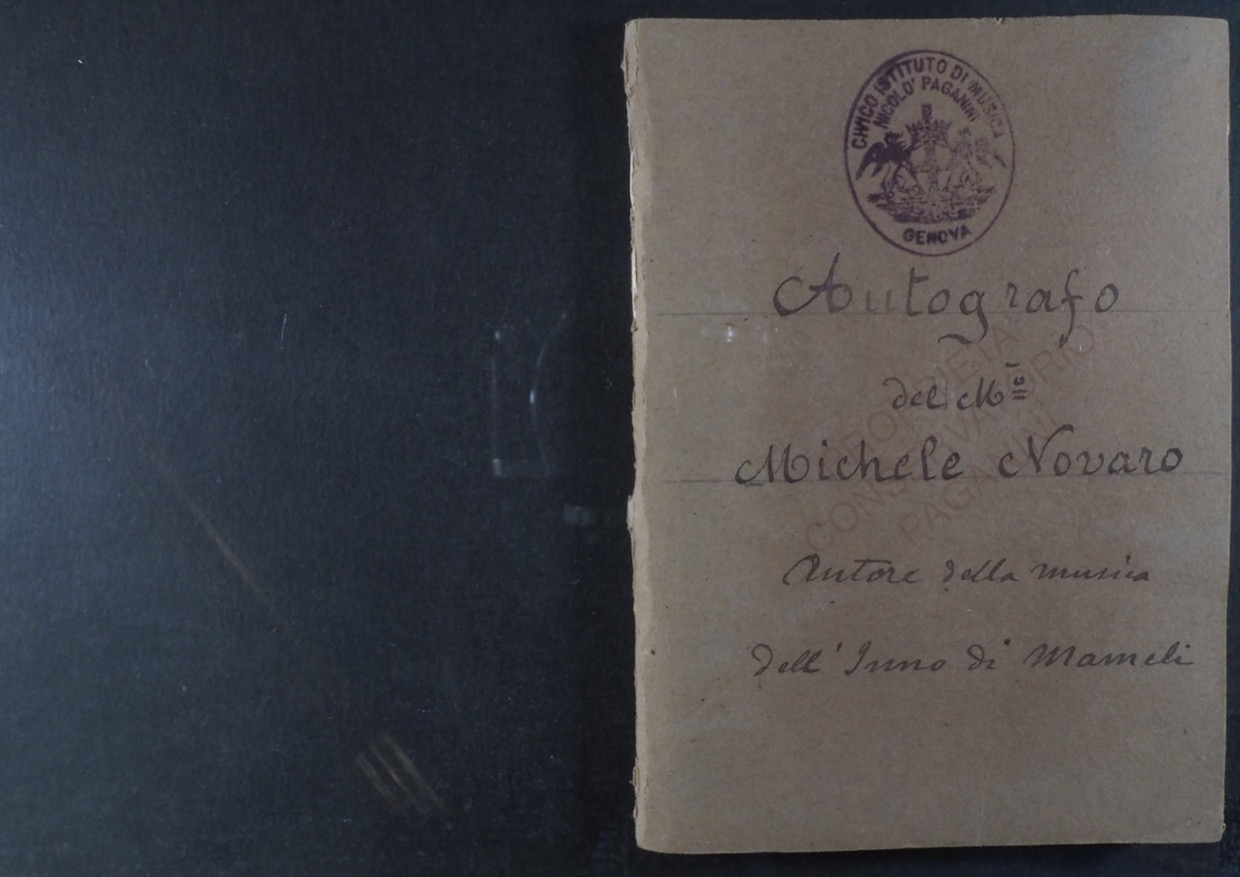 CIVICO ISTITUTO DI MUSICA
NICOLO' PAGANINI
GENOVA
Autografo
del M.º
Michele Novaro
Autore della musica
dell'Inno di Mameli
PROPRIETA
CONSERVATORIO
PAGANINI